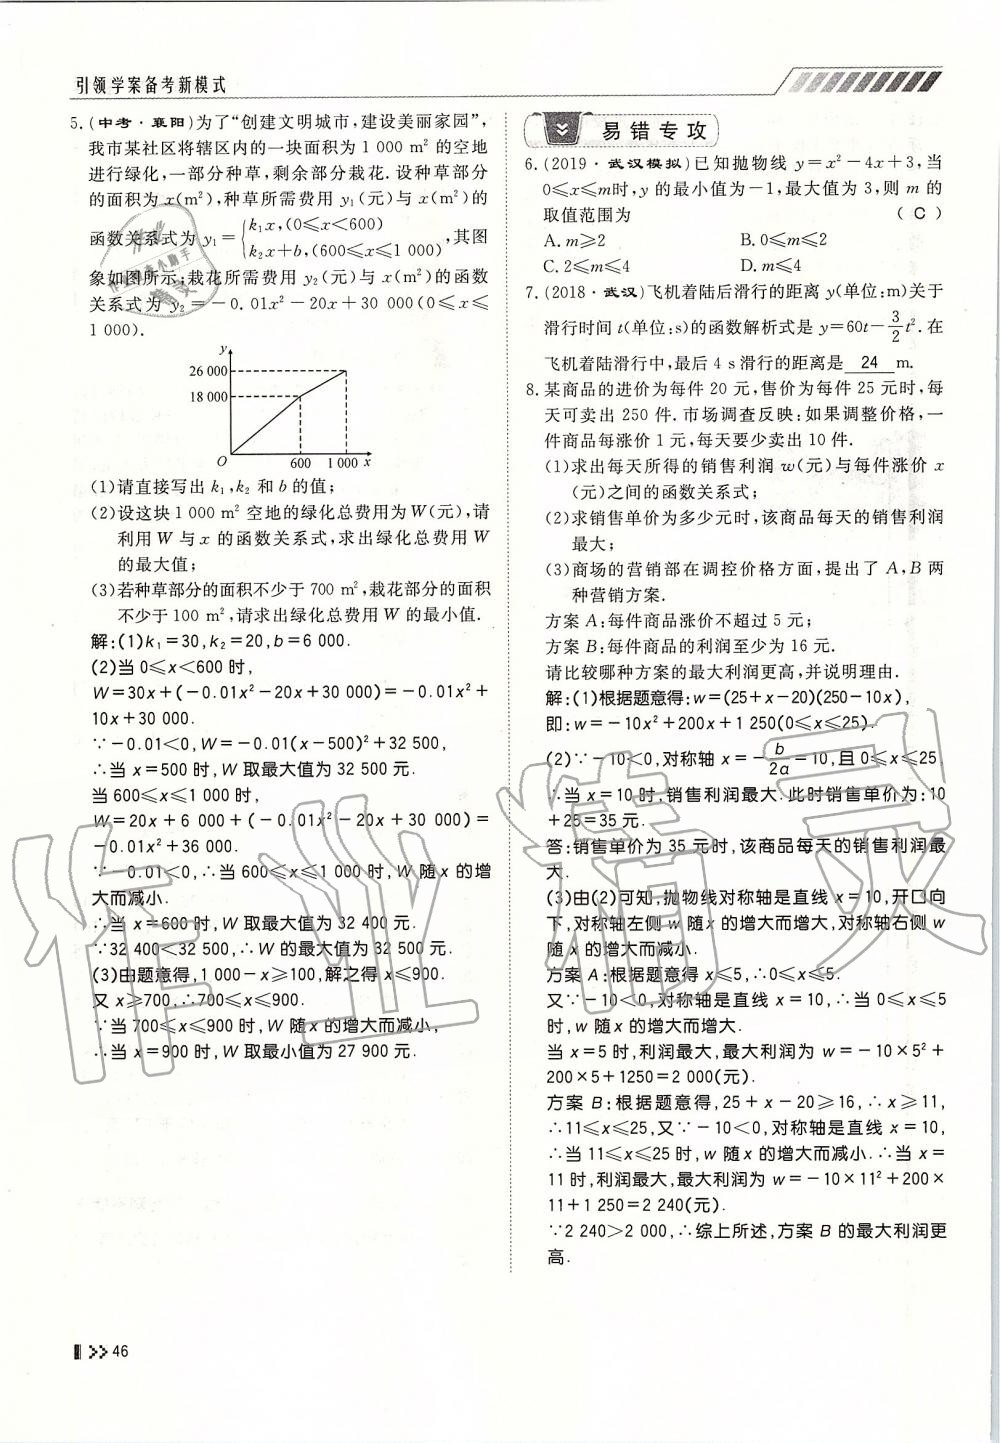 引领学案备考新模式
5.(中考·襄阳)为了“创建文明城市,建设美丽家园”,
我市某社区将辖区内的一块面积为1 000 m²的空地
进行绿化,一部分种草,剩余部分栽花.设种草部分
的面积为x(m²),种草所需费用y₁(元)与x(m²)的
函数关系式为y₁={k₁x,(0≤x<600)
k₂x+b,(600≤x≤1 000),其图
象如图所示;栽花所需费用y₂(元)与x(m²)的函数
关系式为y₂=-0.01x²-20x+30 000(0≤x≤
1 000).
y
26 000
18 000
O 600 1 000 x
(1)请直接写出k₁,k₂和b的值;
(2)设这块1 000 m²空地的绿化总费用为W(元),请
利用W与x的函数关系式,求出绿化总费用W
的最大值;
(3)若种草部分的面积不少于700 m²,栽花部分的面积
不少于100 m²,请求出绿化总费用W的最小值.
解:(1)k₁=30,k₂=20,b=6 000.
(2)当0≤x<600时,
W=30x+(-0.01x²-20x+30 000)=-0.01x²+
10x+30 000.
∵-0.01<0,W=-0.01(x-500)²+32 500,
∴当x=500时,W取最大值为32 500元.
当600≤x≤1 000时,
W=20x+6 000+(-0.01x²-20x+30 000)=
-0.01x²+36 000.
∵-0.01<0,∴当600≤x≤1 000时,W随x的增
大而减小.
∴当x=600时,W取最大值为32 400元.
∵32 400<32 500,∴W的最大值为32 500元.
(3)由题意得,1 000-x≥100,解之得x≤900.
又x≥700,∴700≤x≤900.
∵当700≤x≤900时,W随x的增大而减小,
∴当x=900时,W取最小值为27 900元.
易错专攻
6.(2019·武汉模拟)已知抛物线y=x²-4x+3,当
0≤x≤m时,y的最小值为-1,最大值为3,则m的
取值范围为 ( C )
A.m≥2 B.0≤m≤2
C.2≤m≤4 D.m≤4
7.(2018·武汉)飞机着陆后滑行的距离y(单位:m)关于
滑行时间t(单位:s)的函数解析式是y=60t-3/2t².在
飞机着陆滑行中,最后4 s滑行的距离是 24 m.
8.某商品的进价为每件20元,售价为每件25元时,每
天可卖出250件.市场调查反映:如果调整价格,一
件商品每涨价1元,每天要少卖出10件.
(1)求出每天所得的销售利润w(元)与每件涨价x
(元)之间的函数关系式;
(2)求销售单价为多少元时,该商品每天的销售利润
最大;
(3)商场的营销部在调控价格方面,提出了A,B两
种营销方案.
方案A:每件商品涨价不超过5元;
方案B:每件商品的利润至少为16元.
请比较哪种方案的最大利润更高,并说明理由.
解:(1)根据题意得:w=(25+x-20)(250-10x),
即:w=-10x²+200x+1 250(0≤x≤25).
(2)∵-10<0,对称轴x=-b/2a=10,且0≤x≤25,
∴当x=10时,销售利润最大.此时销售单价为:10
+25=35元.
答:销售单价为35元时,该商品每天的销售利润最
大.
(3)由(2)可知,抛物线对称轴是直线x=10,开口向
下,对称轴左侧w随x的增大而增大,对称轴右侧w
随x的增大而减小.
方案A:根据题意得x≤5,∴0≤x≤5.
又∵-10<0,对称轴是直线x=10,∴当0≤x≤5
时,w随x的增大而增大.
当x=5时,利润最大,最大利润为w=-10×5²+
200×5+1250=2 000(元).
方案B:根据题意得,25+x-20≥16,∴x≥11,
∴11≤x≤25,又∵-10<0,对称轴是直线x=10,
∴当11≤x≤25时,w随x的增大而减小.∴当x=
11时,利润最大,最大利润为w=-10×11²+200×
11+1 250=2 240(元).
∵2 240>2 000,∴综上所述,方案B的最大利润更
高.
46
作业精灵